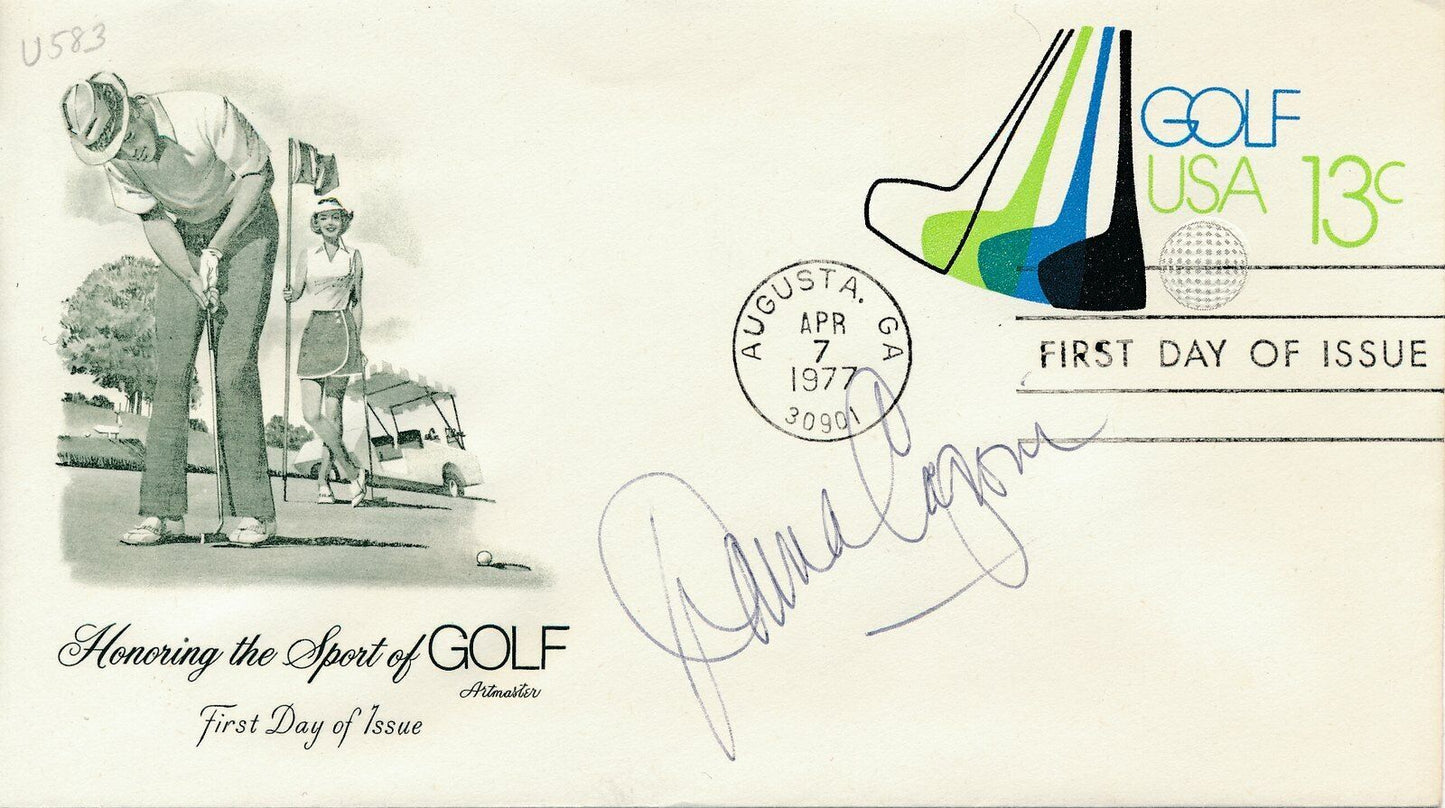 U583
GOLF
USA 13c
AUGUSTA, GA
APR
7
1977
30901
FIRST DAY OF ISSUE
Donna Caponi
Honoring the Sport of GOLF
Artmaster
First Day of Issue